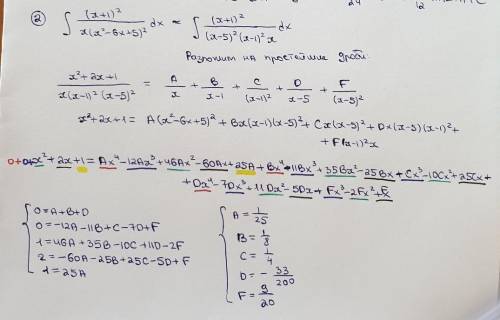 ② ∫ (x+1)² / x(x²-6x+5)² dx = ∫ (x+1)² / (x-5)²(x-1)²x dx
Разложим на простейшие дроби:
x²+2x+1 / x(x-1)²(x-5)² = A/x + B/x-1 + C/(x-1)² + D/x-5 + F/(x-5)²
x²+2x+1 = A(x²-6x+5)² + Bx(x-1)(x-5)² + Cx(x-5)² + Dx(x-5)(x-1)² +
+ F(x-1)²x
0+0+x²+2x+1 = Ax⁴-12Ax³+46Ax²-60Ax+25A+Bx⁴-11Bx³+35Bx²-25Bx+Cx³-10Cx²+25Cx+
+Dx⁴-7Dx³+11Dx²-5Dx+Fx³-2Fx²+Fx
0=A+B+D
0=-12A-11B+C-7D+F
1=46A+35B-10C+11D-2F
2=-60A-25B+25C-5D+F
1=25A
A = 1/25
B = 1/8
C = 1/4
D = - 33/200
F = 9/20